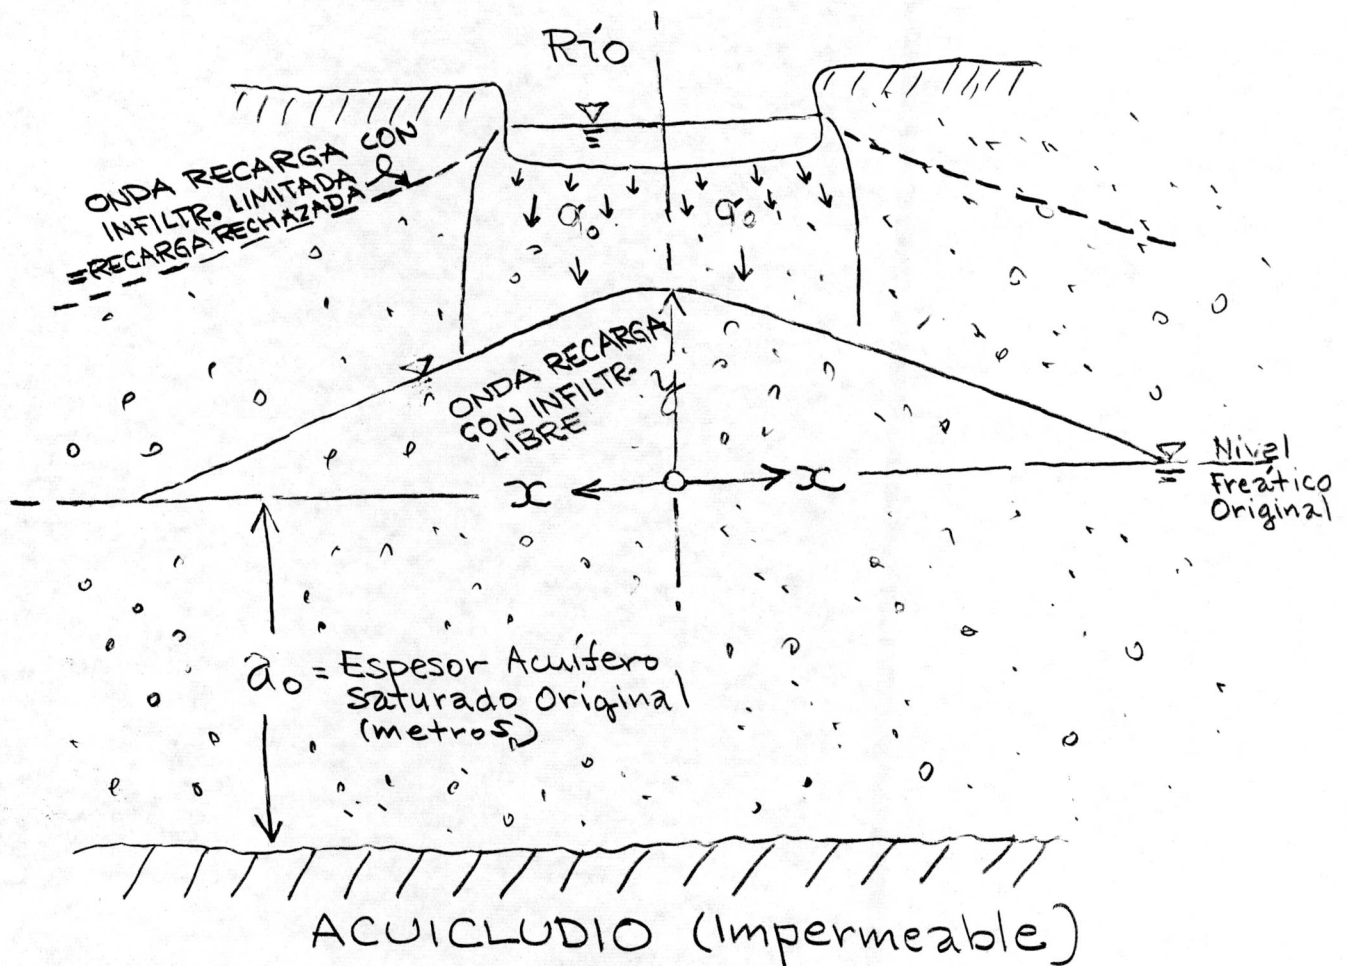 Río
ONDA RECARGA CON
INFILTR. LIMITADA
=RECARGA RECHAZADA
q₀ q₀
ONDA RECARGA
CON INFILTR.
LIBRE
y
x x
Nivel
Freático
Original
a₀ = Espesor Acuífero
Saturado Original
(metros)
ACUICLUDIO (Impermeable)